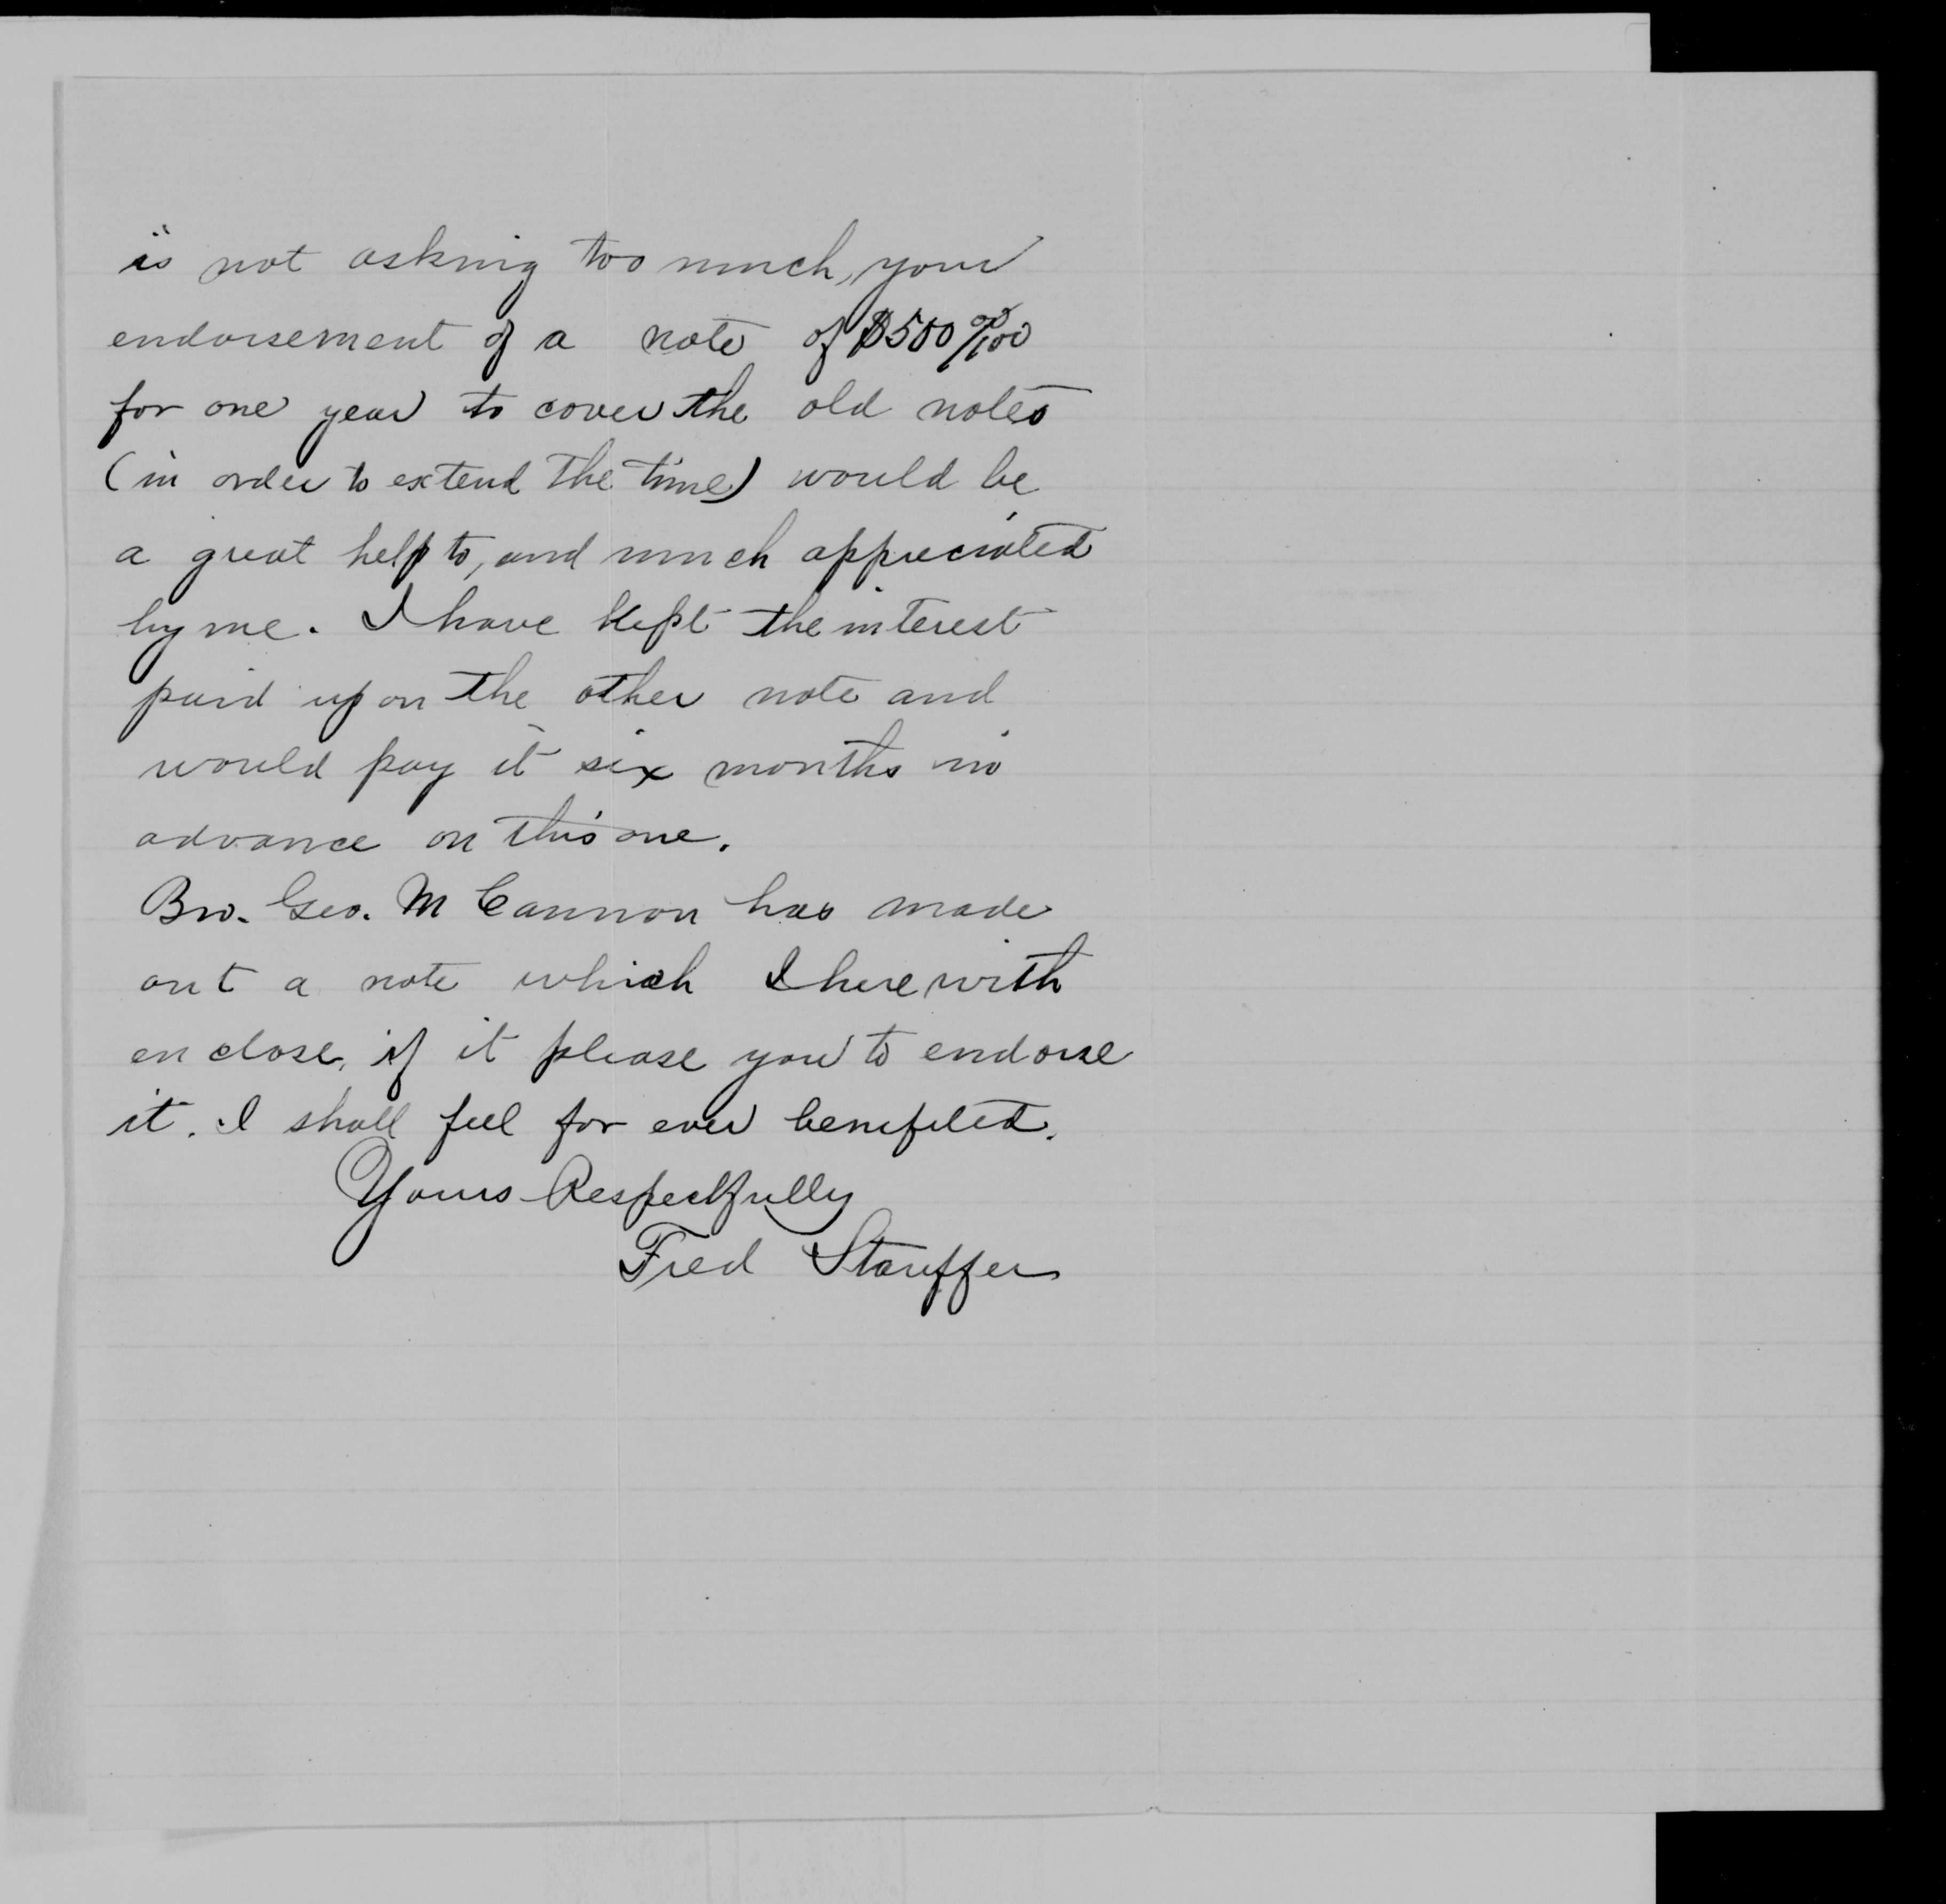 is not asking too much, your
endorsement of a note of $500 00/100
for one year to cover the old notes
(in order to extend the time) would be
a great help to, and much appreciated
by me. I have kept the interest
paid up on the other note and
would pay it six months in
advance on this one.
Bro. Geo. M Cannon has made
out a note which I here with
en close, if it please you to endorse
it. I shall feel for ever benefited.
Yours Respectfully
Fred Stauffer